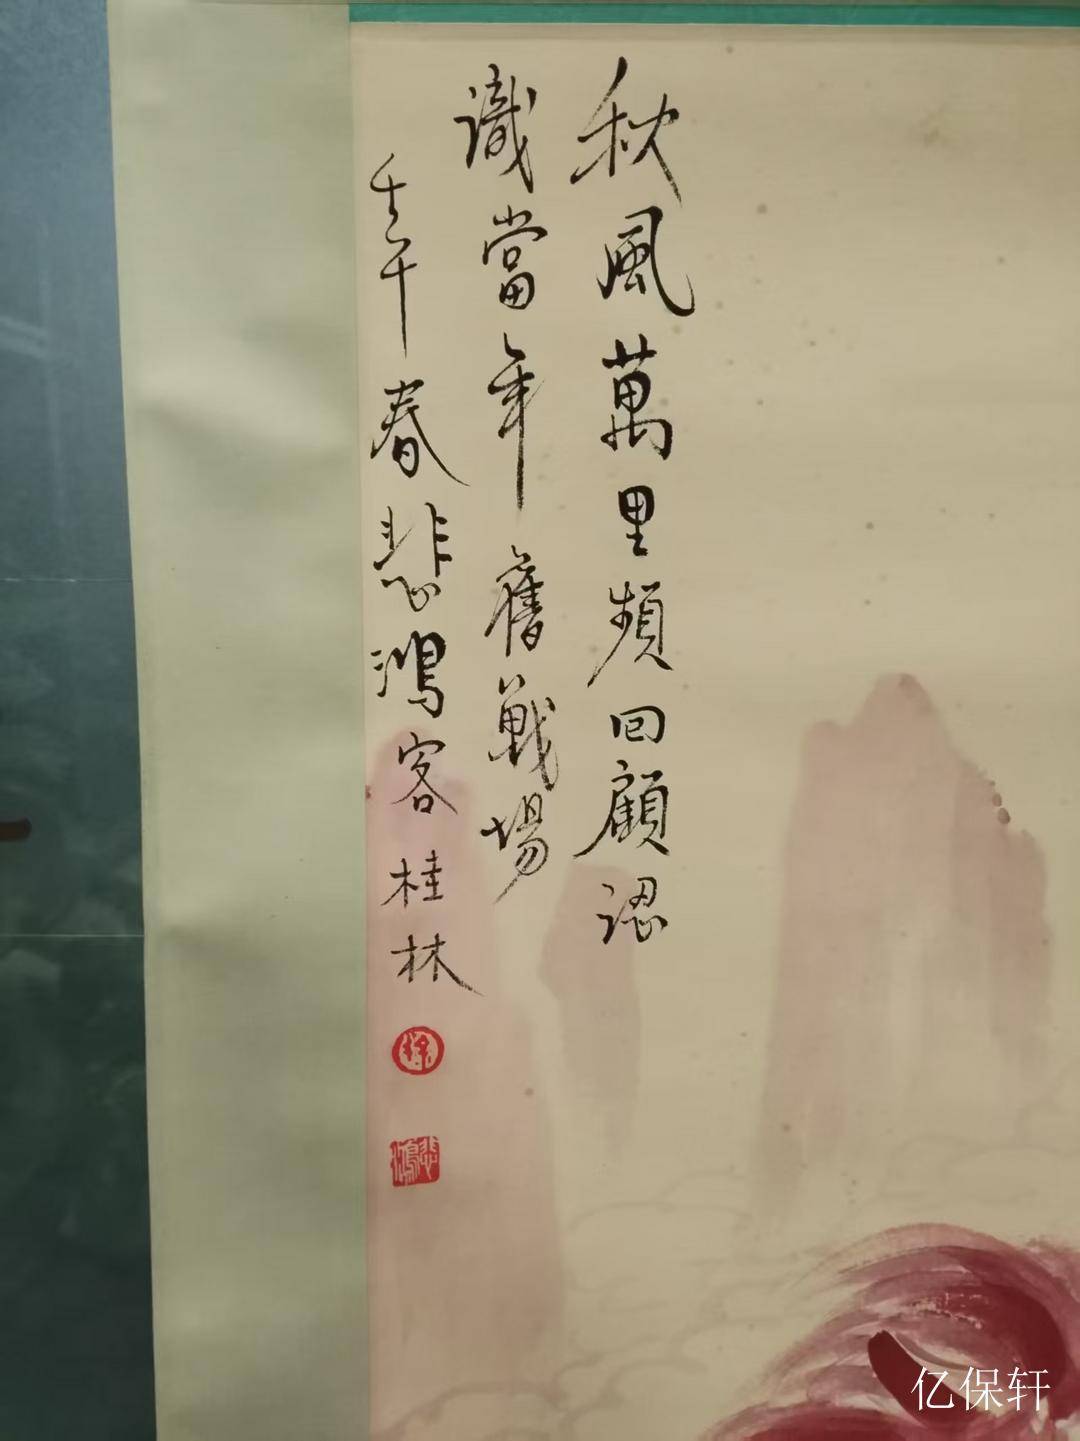 秋風萬里頻回顧認
識當年舊戰場
壬午春悲鴻客桂林
徐
悲鴻
亿保轩